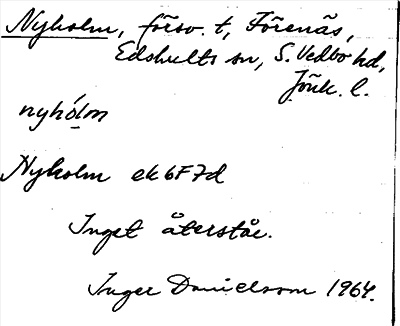 Nyholm, försv. t, Förenäs,
Edshults sn, S. Vedbo hd,
Jönk. l.
nyhólm
Nyholm ek 6F7d
Inget återstår.
Inger Danielsson 1964.